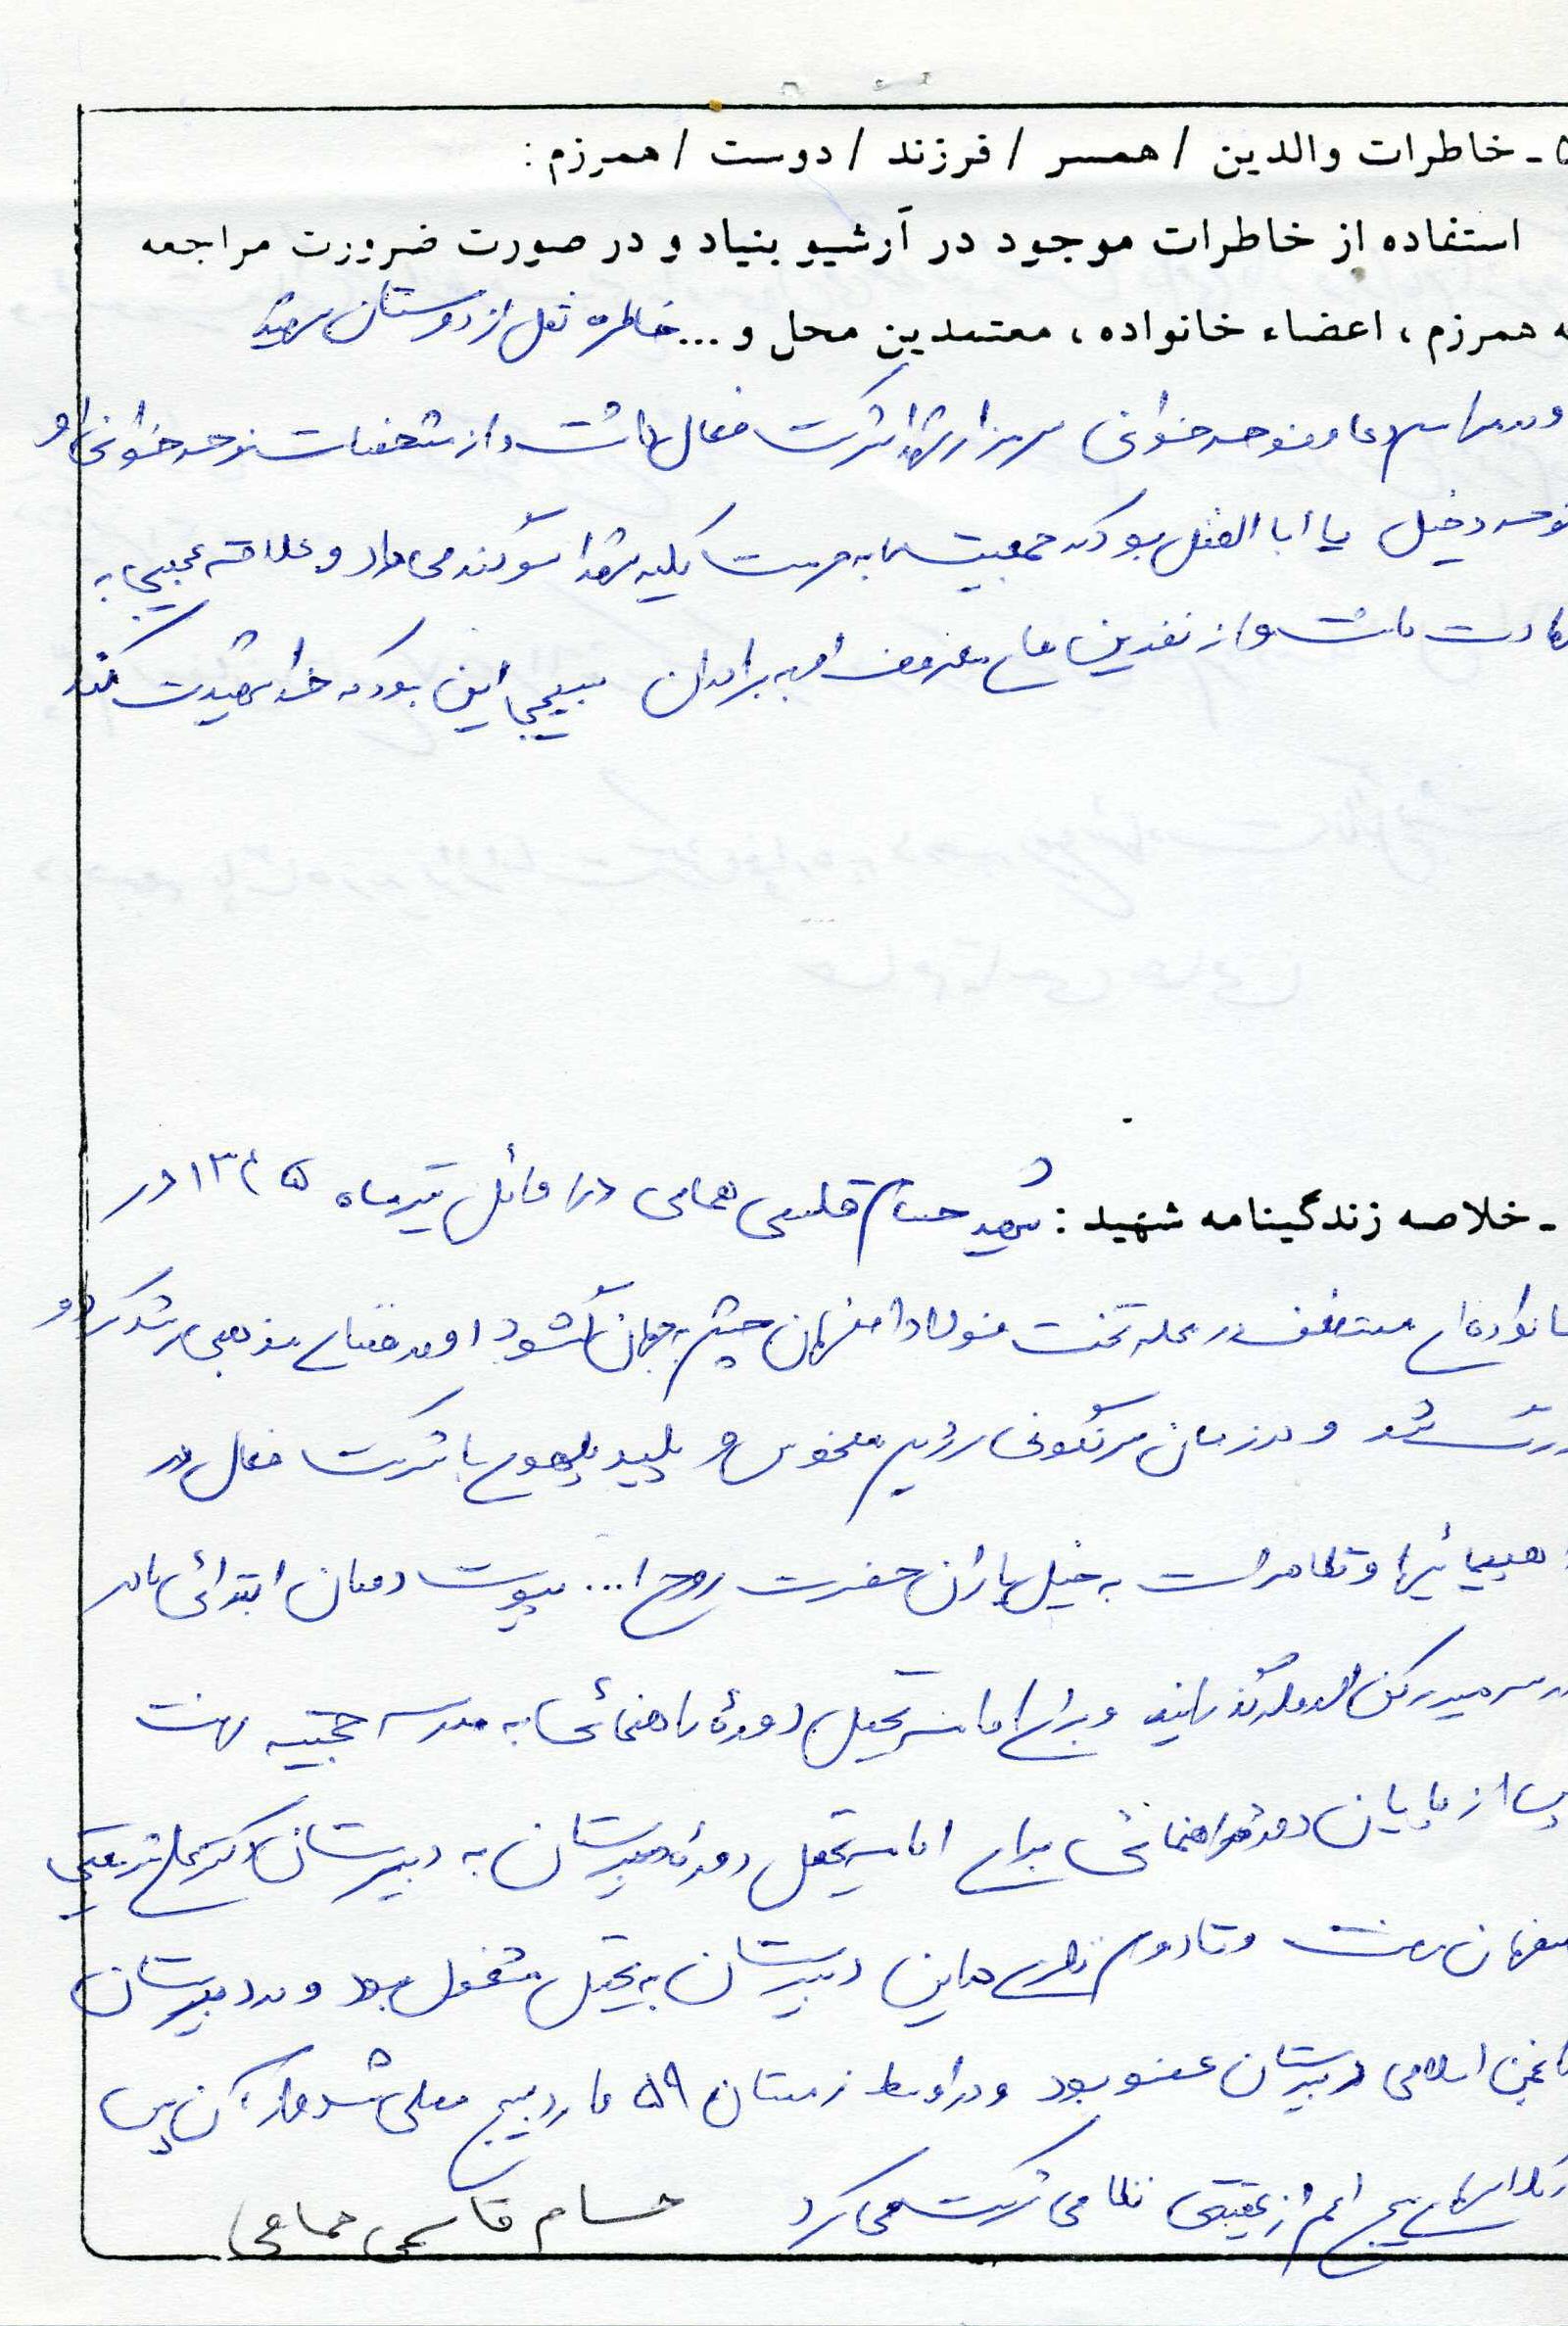 ۵ - خاطرات والدین / همسر / فرزند / دوست / همرزم :
استفاده از خاطرات موجود در آرشیو بنیاد و در صورت ضرورت مراجعه
ه همرزم ، اعضاء خانواده ، معتمدین محل و ... خاطره نقل از دوستان شهید
و در مراسم دعا و نوحه خوانی سر مزار شهدا شرکت فعال داشت و از مشخصات نوحه خوانی او
نوحه دخیل یا ابا الفضل بود که جمعیت را به حرمت کلیه شهدا سوگند می داد و علاقه عجیبی به
داشت و از نفرین های معروف او به برادران بسیجی این بود که خدا شهیدت کند
- خلاصه زندگینامه شهید : شهید حسام قاسمی همامی در اوائل تیرماه ۱۳۴۵ در
خانواده ای مستضعف در محله تخت فولاد اصفهان چشم به جهان گشود او در فضای مذهبی رشد کرد و
بزرگ شد و در زمان سرنگونی رژیم منحوس و پلید پهلوی با شرکت فعال در
راهپیمائیها و تظاهرات به خیل یاران حضرت روح ا... پیوست دوران ابتدائی را در
مدرسه رکن الدوله گذرانید و برای ادامه تحصیل دورهٔ راهنمائی به مدرسه حجتیه رفت
پس از پایان دوره راهنمائی برای ادامه تحصیل دوره دبیرستان به دبیرستان دکتر علی شریعتی
اصفهان رفت و تا دوم نظری در این دبیرستان به تحصیل مشغول بود و در دبیرستان
انجمن اسلامی دبیرستان عضو بود و در اواسط زمستان ۵۹ وارد بسیج محلی شد و از آن پس
در کلاسهای بسیج اعم از عقیدتی نظامی شرکت می کرد حسام قاسمی همامی